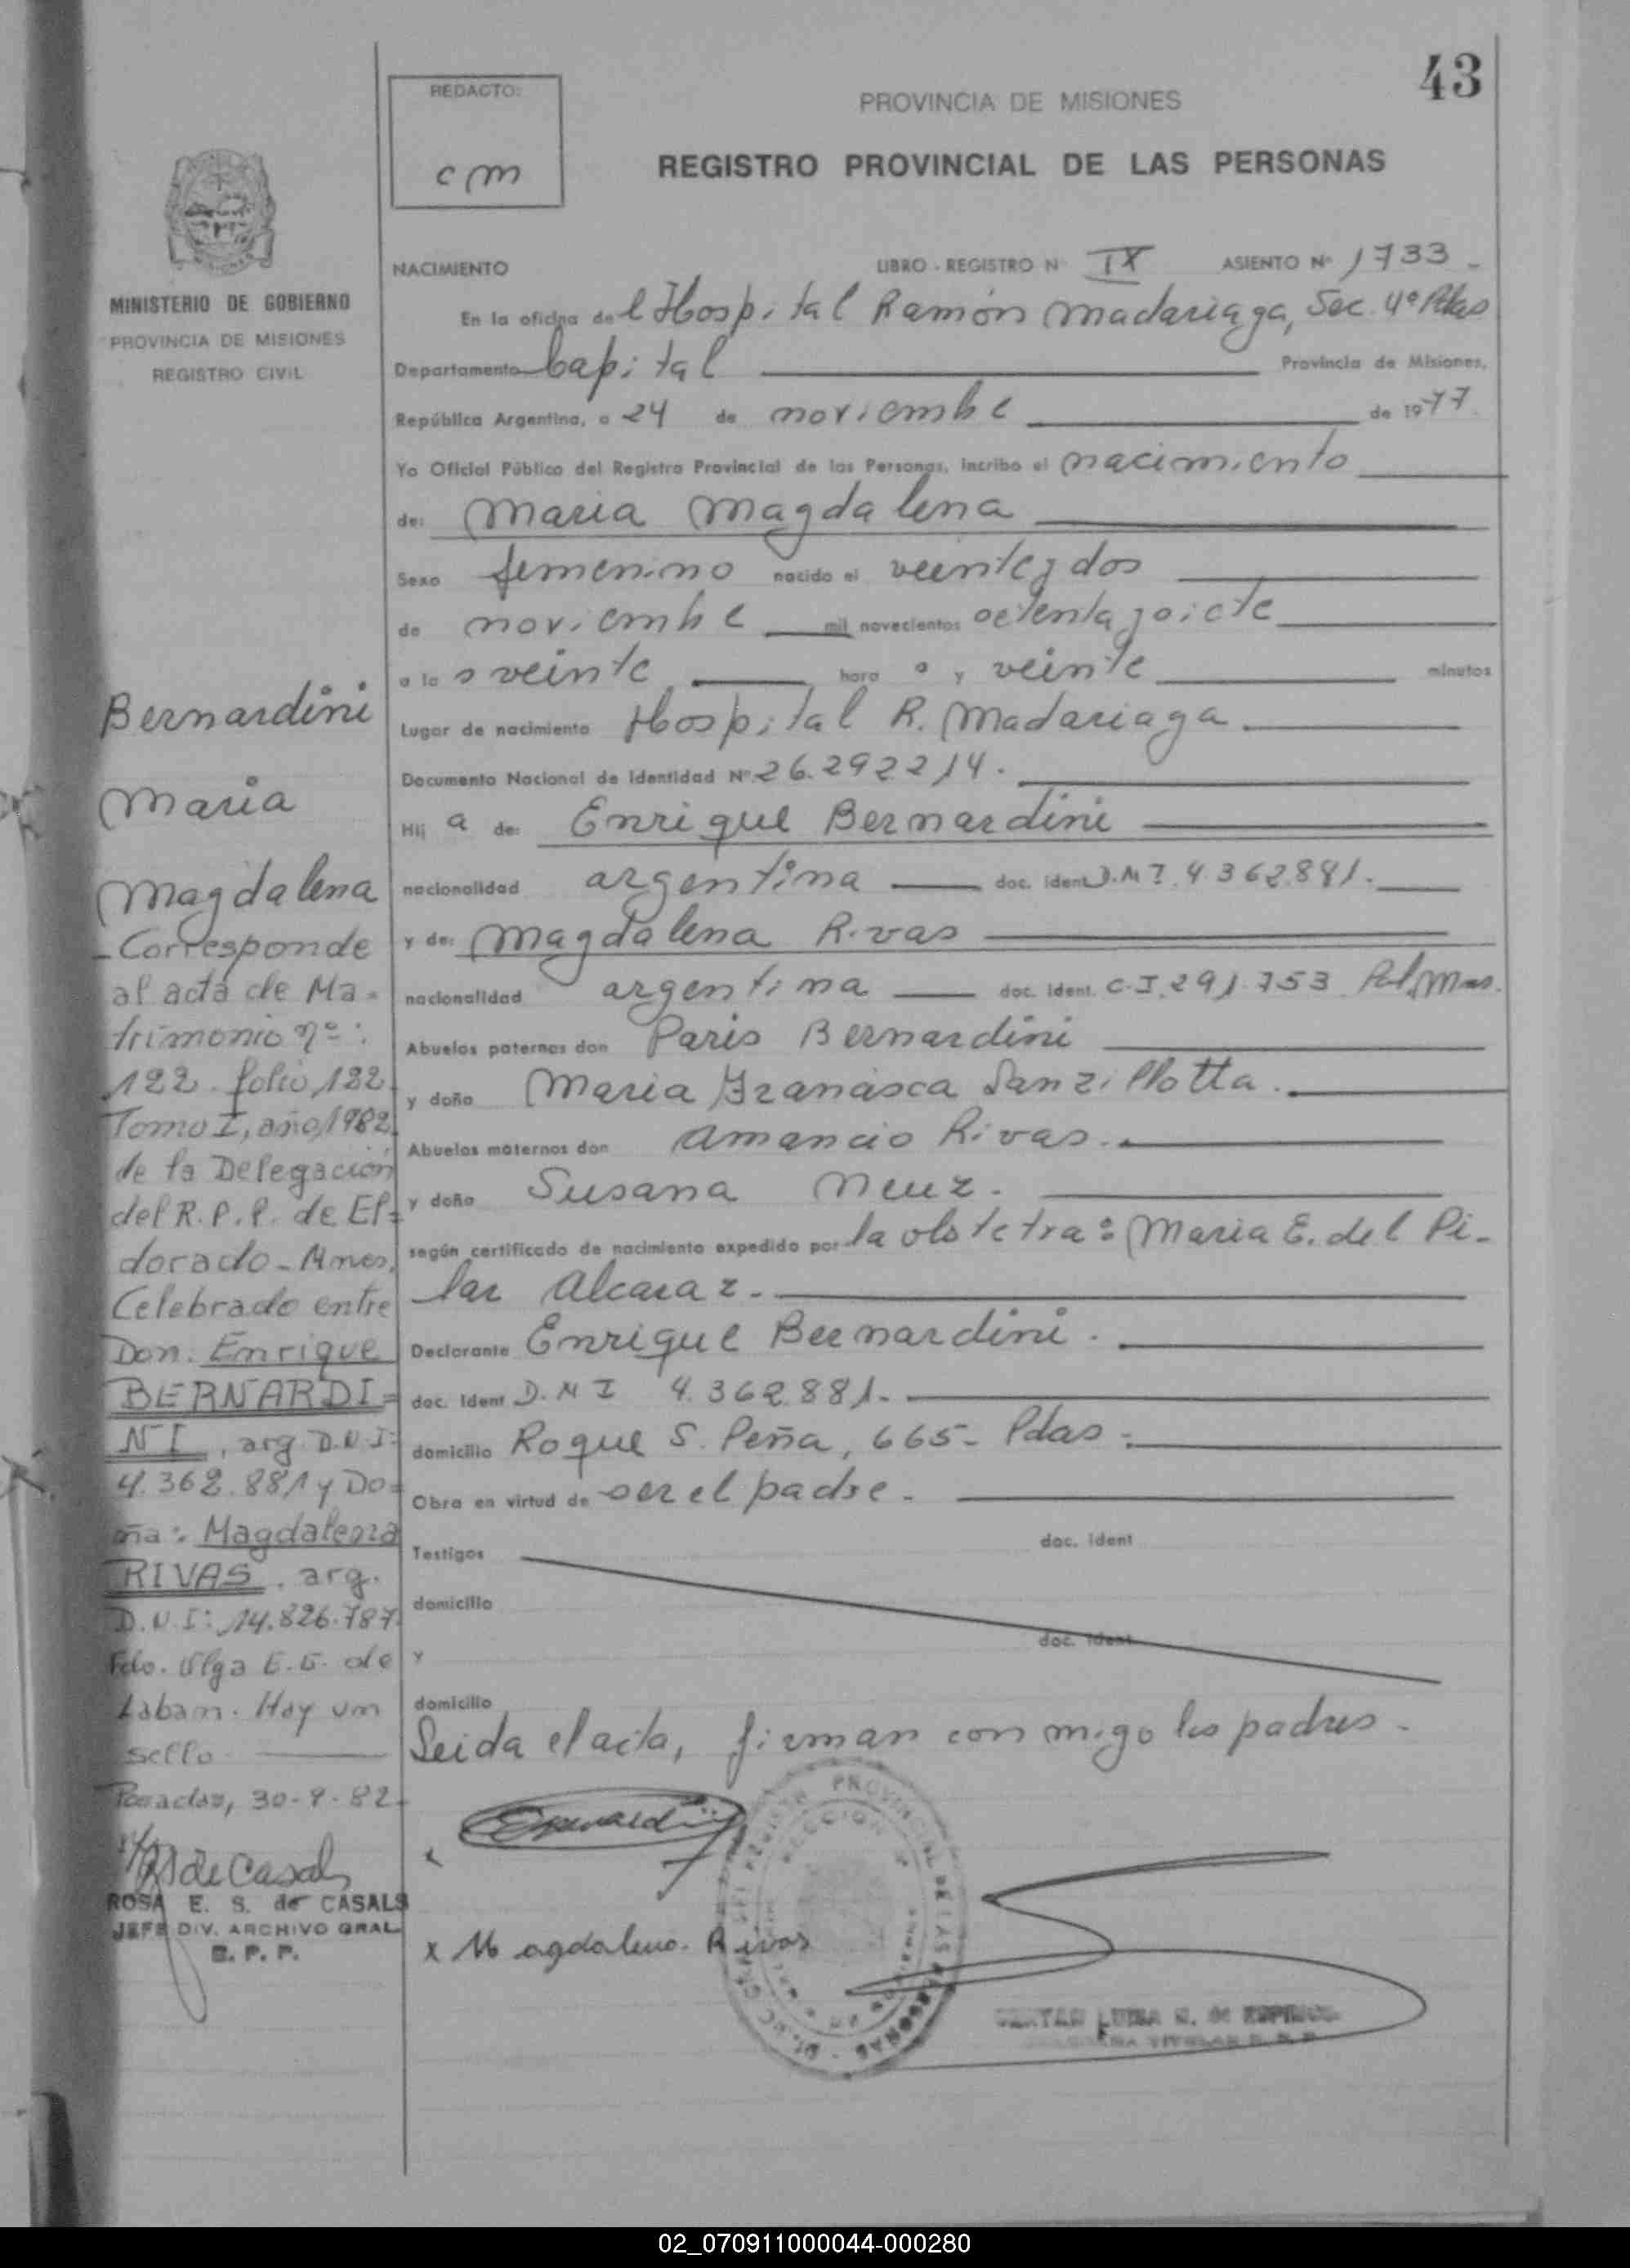 43
REDACTO:
cm
PROVINCIA DE MISIONES
REGISTRO PROVINCIAL DE LAS PERSONAS
MINISTERIO DE GOBIERNO
PROVINCIA DE MISIONES
REGISTRO CIVIL
NACIMIENTO LIBRO - REGISTRO N IX ASIENTO Nº 1733 -
En la oficina de l Hospital Ramón Madariaga, Sec. 4º Pdas
Departamento Capital Provincia de Misiones,
República Argentina, a 24 de noviembre de 1977.
Yo Oficial Público del Registro Provincial de las Personas, incribo el nacimiento
de: Maria Magdalena
Sexo femenino nacido el veinte y dos
de noviembre mil novecientos setenta y siete
a la s veinte hora s y veinte minutos
Lugar de nacimiento Hospital R. Madariaga.
Documento Nacional de Identidad Nº 26.292214.
Hij a de: Enrique Bernardini
nacionalidad argentina doc. ident D.N I. 4.362.881.
y de: Magdalena Rivas
nacionalidad argentina doc. ident. C.I. 291.753 Pol. Mnes.
Abuelos paternos don Paris Bernardini
y doña Maria Sanzillotta.
Abuelos maternos don Amancio Rivas.
y doña Susana
según certificado de nacimiento expedido por la obstetra: Maria E. del Pi-
lar Alcaraz.
Declarante Enrique Bernardini.
doc. Ident D.N I 4.362.881.
domicilio Roque S. Peña, 665- Pdas.
Obra en virtud de ser el padre.
Testigos doc. ident
domicilio
doc. ident
y
domicilio
Leida el acta, firman conmigo los padres.
x Magdalena Rivas
Bernardini
Maria
Magdalena
- Corresponde
al acta de Ma=
trimonio nº:
122 folio 122
Tomo I, año 1982
de la Delegación
del R.P.P. de El=
dorado - Mnes,
Celebrado entre
Don. Enrique
BERNARDI=
NI, arg. D.N.I:
4.362.881 y Do=
ña: Magdalena
RIVAS. arg.
D.N.I: 14.826.787
Fdo. Olga E. de
Laban. Hay un
sello.
Posadas, 30-9-82
de Casals
ROSA E. S. de CASALS
JEFE DIV. ARCHIVO GRAL
R. P. P.
02_070911000044-000280